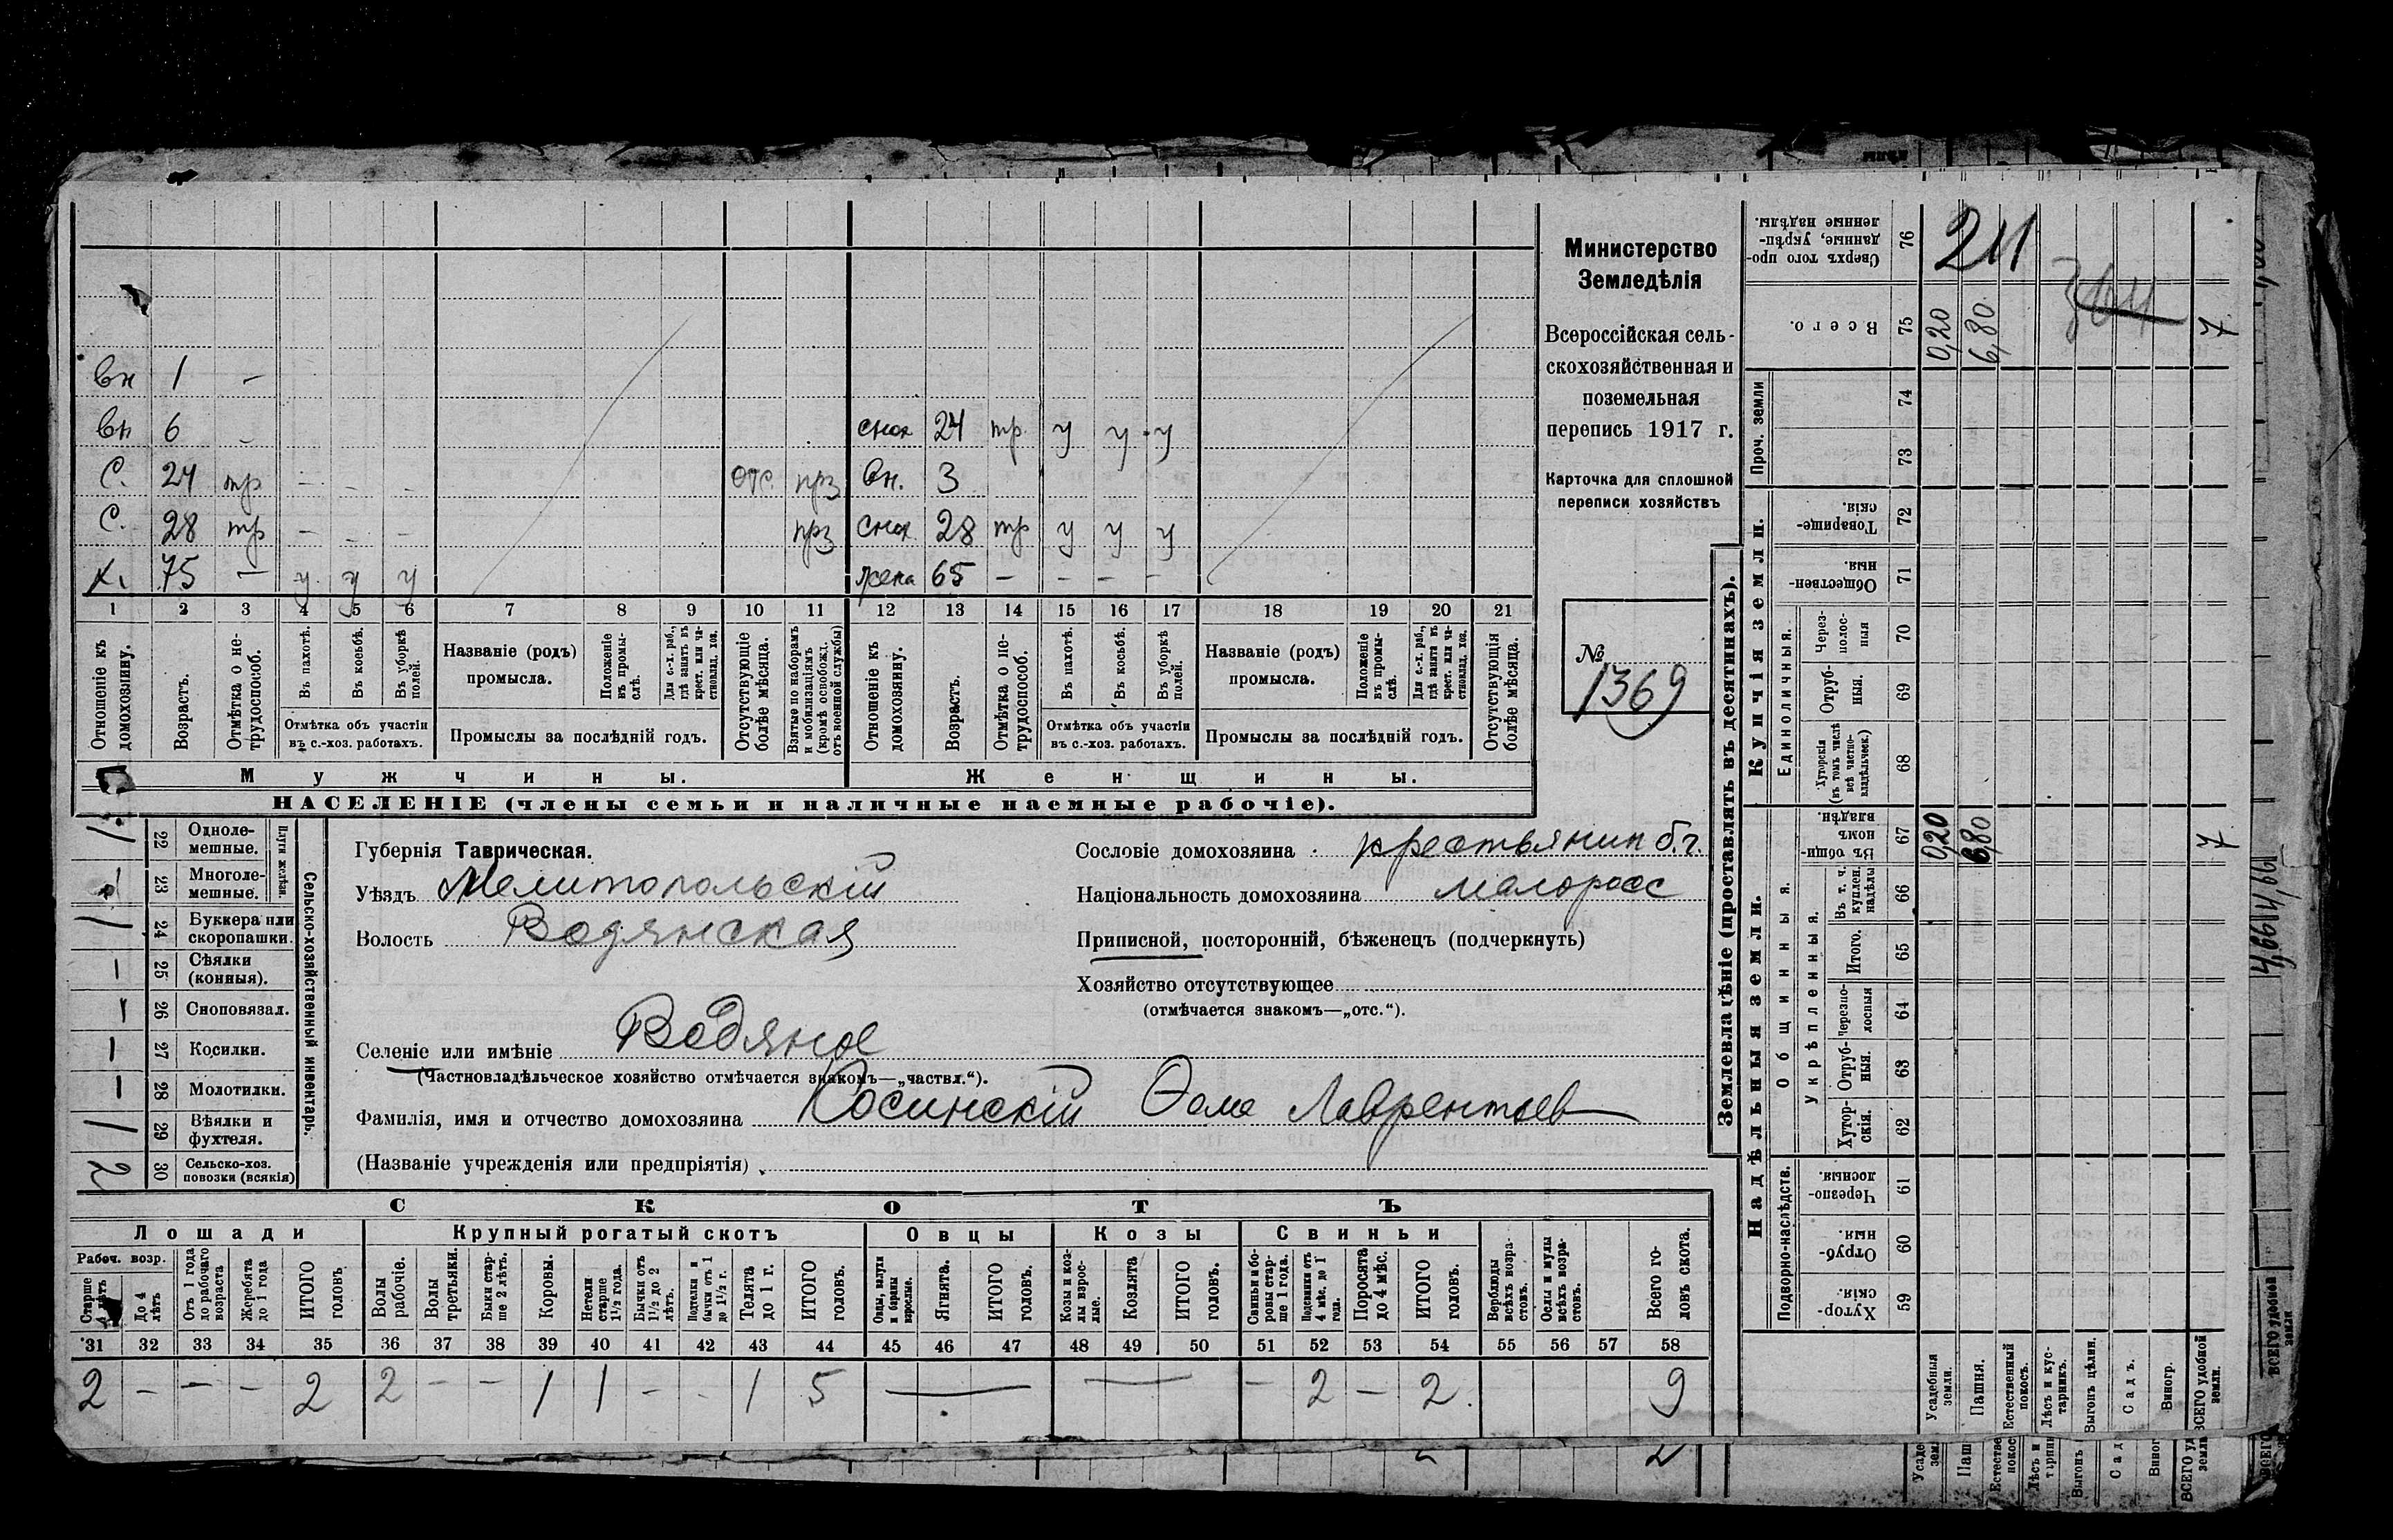 вн 1 —
вн 6 — снох 24 тр у у у
С. 24 тр — — — отс. прз вн. 3
С. 28 тр — — — прз снох 28 тр у у у
Х. 75 — у у у жена 65 — — — —
1 2 3 4 5 6 7 8 9 10 11 12 13 14 15 16 17 18 19 20 21
Отношеніе къ домохозяину.
Возрастъ.
Отмѣтка о нетрудоспособ.
Въ пахотѣ.
Въ косьбѣ.
Въ уборкѣ полей.
Отмѣтка объ участіи въ с.-хоз. работахъ.
Названіе (родъ) промысла.
Положеніе въ промыслѣ.
Для с.-х. раб., гдѣ занятъ въ крест. или частновлад. хоз.
Промыслы за послѣдній годъ.
Отсутствующіе болѣе мѣсяца.
Взятые по наборамъ и мобилизаціямъ (кромѣ освобожд. отъ военной службы)
Отношеніе къ домохозяину.
Возрастъ.
Отмѣтка о нетрудоспособ.
Въ пахотѣ.
Въ косьбѣ.
Въ уборкѣ полей.
Отмѣтка объ участіи въ с.-хоз. работахъ.
Названіе (родъ) промысла.
Положеніе въ промыслѣ.
Для с.-х. раб., гдѣ занята въ крест. или частновлад. хоз.
Промыслы за послѣдній годъ.
Отсутствующія болѣе мѣсяца.
Мужчины.
Женщины.
НАСЕЛЕНІЕ (члены семьи и наличные наемные рабочіе).
Министерство
Земледѣлія
Всероссійская сель-
скохозяйственная и
поземельная
перепись 1917 г.
Карточка для сплошной
переписи хозяйствъ
№
1369
Сельско-хозяйственный инвентарь.
Плуги желѣзн.
1 22 Одноле-мешные.
23 Многоле-мешные.
1 24 Буккера или скоропашки.
— 25 Сѣялки (конныя).
26 Сноповязал.
— 27 Косилки.
— 28 Молотилки.
1 29 Вѣялки и фухтеля.
2 30 Сельско-хоз. повозки (всякія)
Губернія Таврическая.
Уѣздъ Мелитопольскій
Волость Водянская
Селеніе или имѣніе Водяное
(Частновладѣльческое хозяйство отмѣчается знакомъ—„частвл.“).
Фамилія, имя и отчество домохозяина Косинскій Ѳома Лаврентьев
(Названіе учрежденія или предпріятія)
Сословіе домохозяина крестьянин б.г.
Національность домохозяина малоросс
Приписной, посторонній, бѣженецъ (подчеркнуть)
Хозяйство отсутствующее
(отмѣчается знакомъ—„отс.“).
СКОТЪ
Лошади
Крупный рогатый скотъ
Овцы
Козы
Свиньи
Рабоч. возр.
Старше 4 лѣтъ
До 4 лѣтъ
Отъ 1 года до рабочаго возраста
Жеребята до 1 года
ИТОГО головъ
Волы рабочіе.
Волы третьяки.
Быки старше 2 лѣтъ.
Коровы.
Нетели старше 1½ года.
Бычки отъ 1½ до 2 лѣтъ.
Подтелки и бычки отъ 1 до 1½ г.
Телята до 1 г.
ИТОГО головъ.
Овцы, валухи и бараны взрослые.
Ягнята.
ИТОГО головъ.
Козы и козлы взрослые.
Козлята
ИТОГО головъ.
Свиньи и боровы старше 1 года.
Подсвинки отъ 4 мѣс. до 1 года.
Поросята до 4 мѣс.
ИТОГО головъ.
Верблюды всѣхъ возрастовъ.
Ослы и мулы всѣхъ возрастовъ.
Всего головъ скота.
31 32 33 34 35 36 37 38 39 40 41 42 43 44 45 46 47 48 49 50 51 52 53 54 55 56 57 58
2 — — — 2 2 — — 1 1 — — 1 5 — — — 2 — 2 9
Землевладѣніе (проставлять въ десятинахъ).
Надѣльныя земли.
Купчія земли.
Проч. земли
Сверхъ того проданные, укрѣпленные надѣлы. 76
211
364
Всего. 75 0,20 6,80 7
74
73
Товарищескія. 72
Общественныя. 71
Единоличныя.
Черезполосныя 70
Отрубныя. 69
Хуторскія (въ томъ числѣ всѣ частновладѣльческ.) 68
Въ общинномъ владѣн. 67 0,20 6,80 7
Общинныя.
Укрѣпленныя.
Въ т. ч. куплен. надѣлы 66
Итого. 65
Черезполосныя 64
Отрубныя. 63
Хуторскія. 62
Подворно-наслѣдств.
Черезполосныя. 61
Отрубныя. 60
Хуторскія. 59
Усадебныя земли.
Пашня.
Естественный покосъ.
Лѣсъ и кустарникъ.
Выгонъ цѣлин.
Садъ.
Виногр.
ВСЕГО удобной земли.
ВСЕГО удобной земли